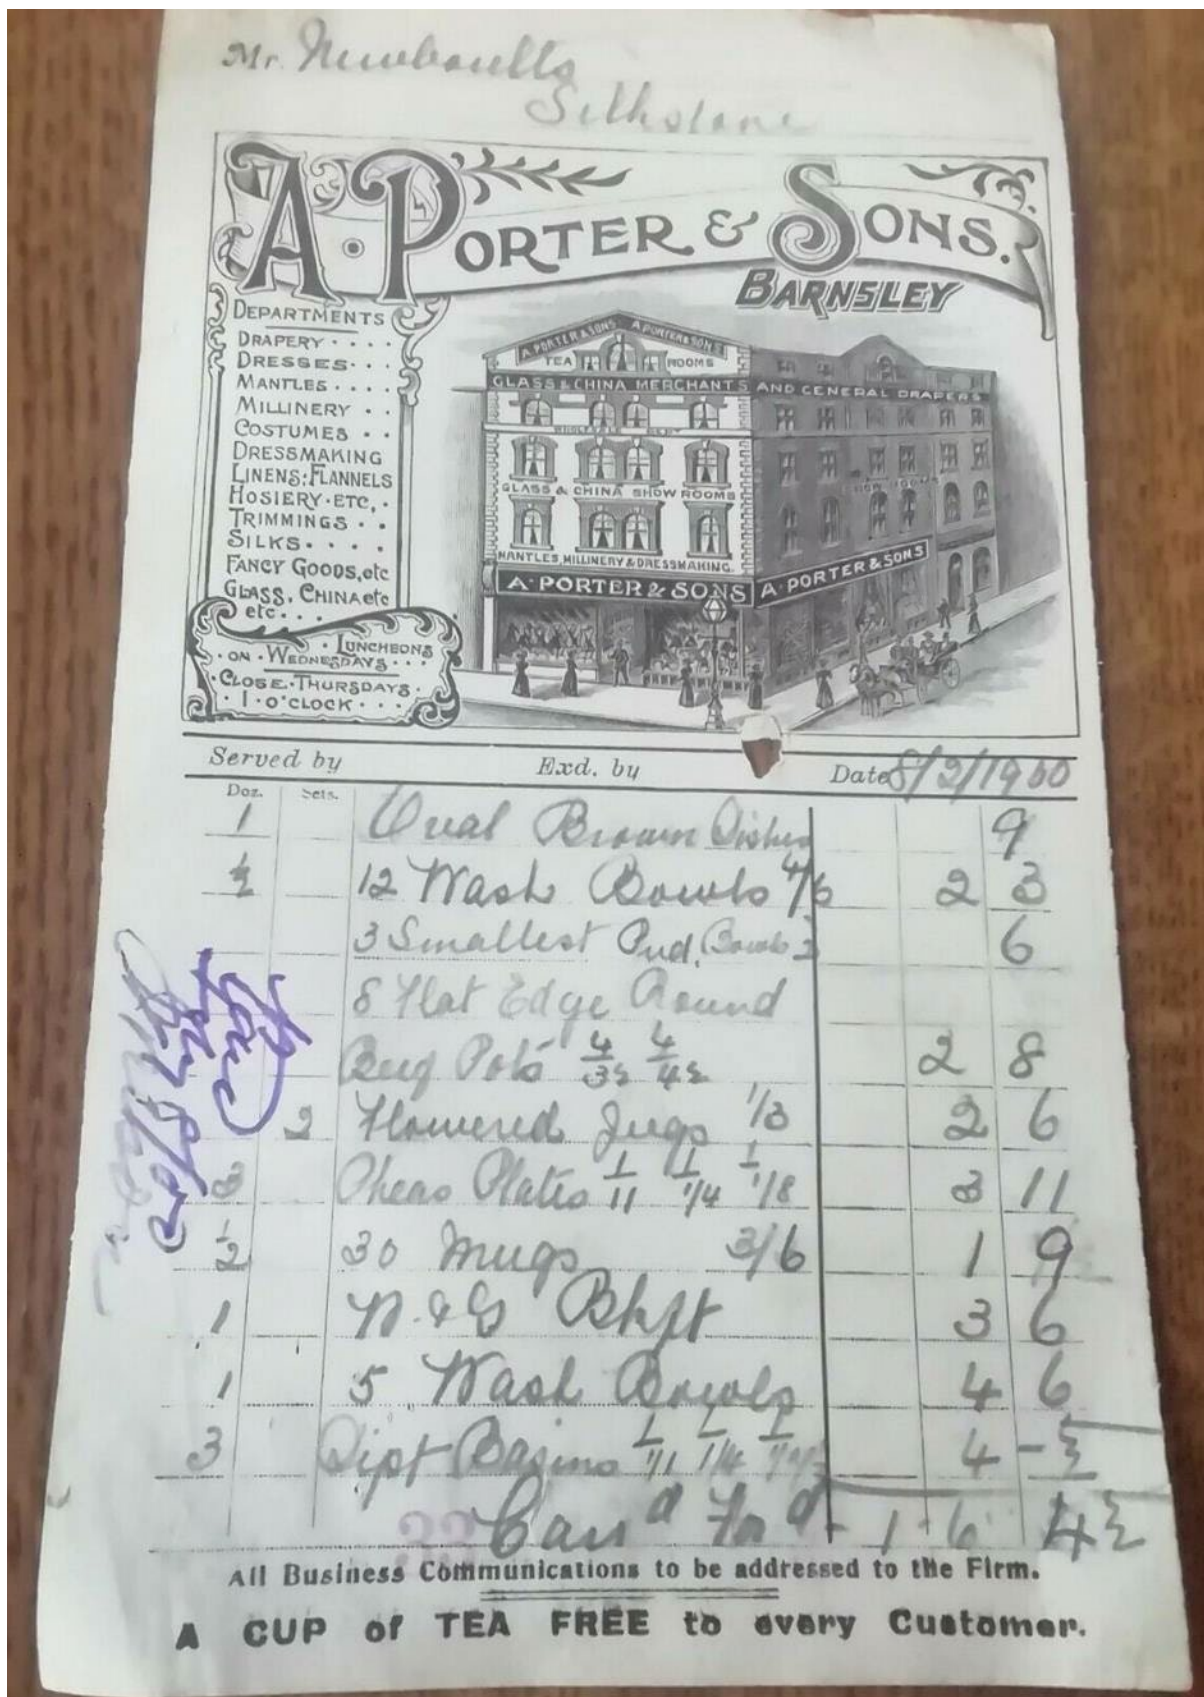 Mr. Newboults
Silkstone
A. PORTER & SONS.
BARNSLEY
DEPARTMENTS
DRAPERY
DRESSES
MANTLES
MILLINERY
COSTUMES
DRESSMAKING
LINENS: FLANNELS
HOSIERY. ETC,
TRIMMINGS
SILKS
FANCY GOODS, etc
GLASS, CHINA etc
etc
LUNCHEONS
ON WEDNESDAYS
CLOSE THURSDAYS
1 O'CLOCK
A. PORTER & SONS A. PORTER & SONS
TEA ROOMS
GLASS & CHINA MERCHANTS AND GENERAL DRAPERS
GLASS & CHINA SHOW ROOMS
MANTLES, MILLINERY & DRESSMAKING.
A. PORTER & SONS A. PORTER & SONS
Served by Exd. by Date 8/2/1900
Doz. Sets.
1 Oval Brown Dishes 9
½ 12 Wash Bowls 4/6 2 3
3 Smallest Pud. Bowls 2 6
8 Flat Edge Round
Pots 4/3½ 4/4½ 2 8
2 Flowered Jugs 1/3 2 6
3 Plates 1/11 1/1/4 1/1/8 3 11
½ 30 Mugs 3/6 1 9
1 W. & G Bkft 3 6
1 5 Wash Bowls 4 6
3 Dipt Basins 1/1/1 1/1/4 4 - ½
Carrd Ford 1 6 4½
All Business Communications to be addressed to the Firm.
A CUP of TEA FREE to every Customer.